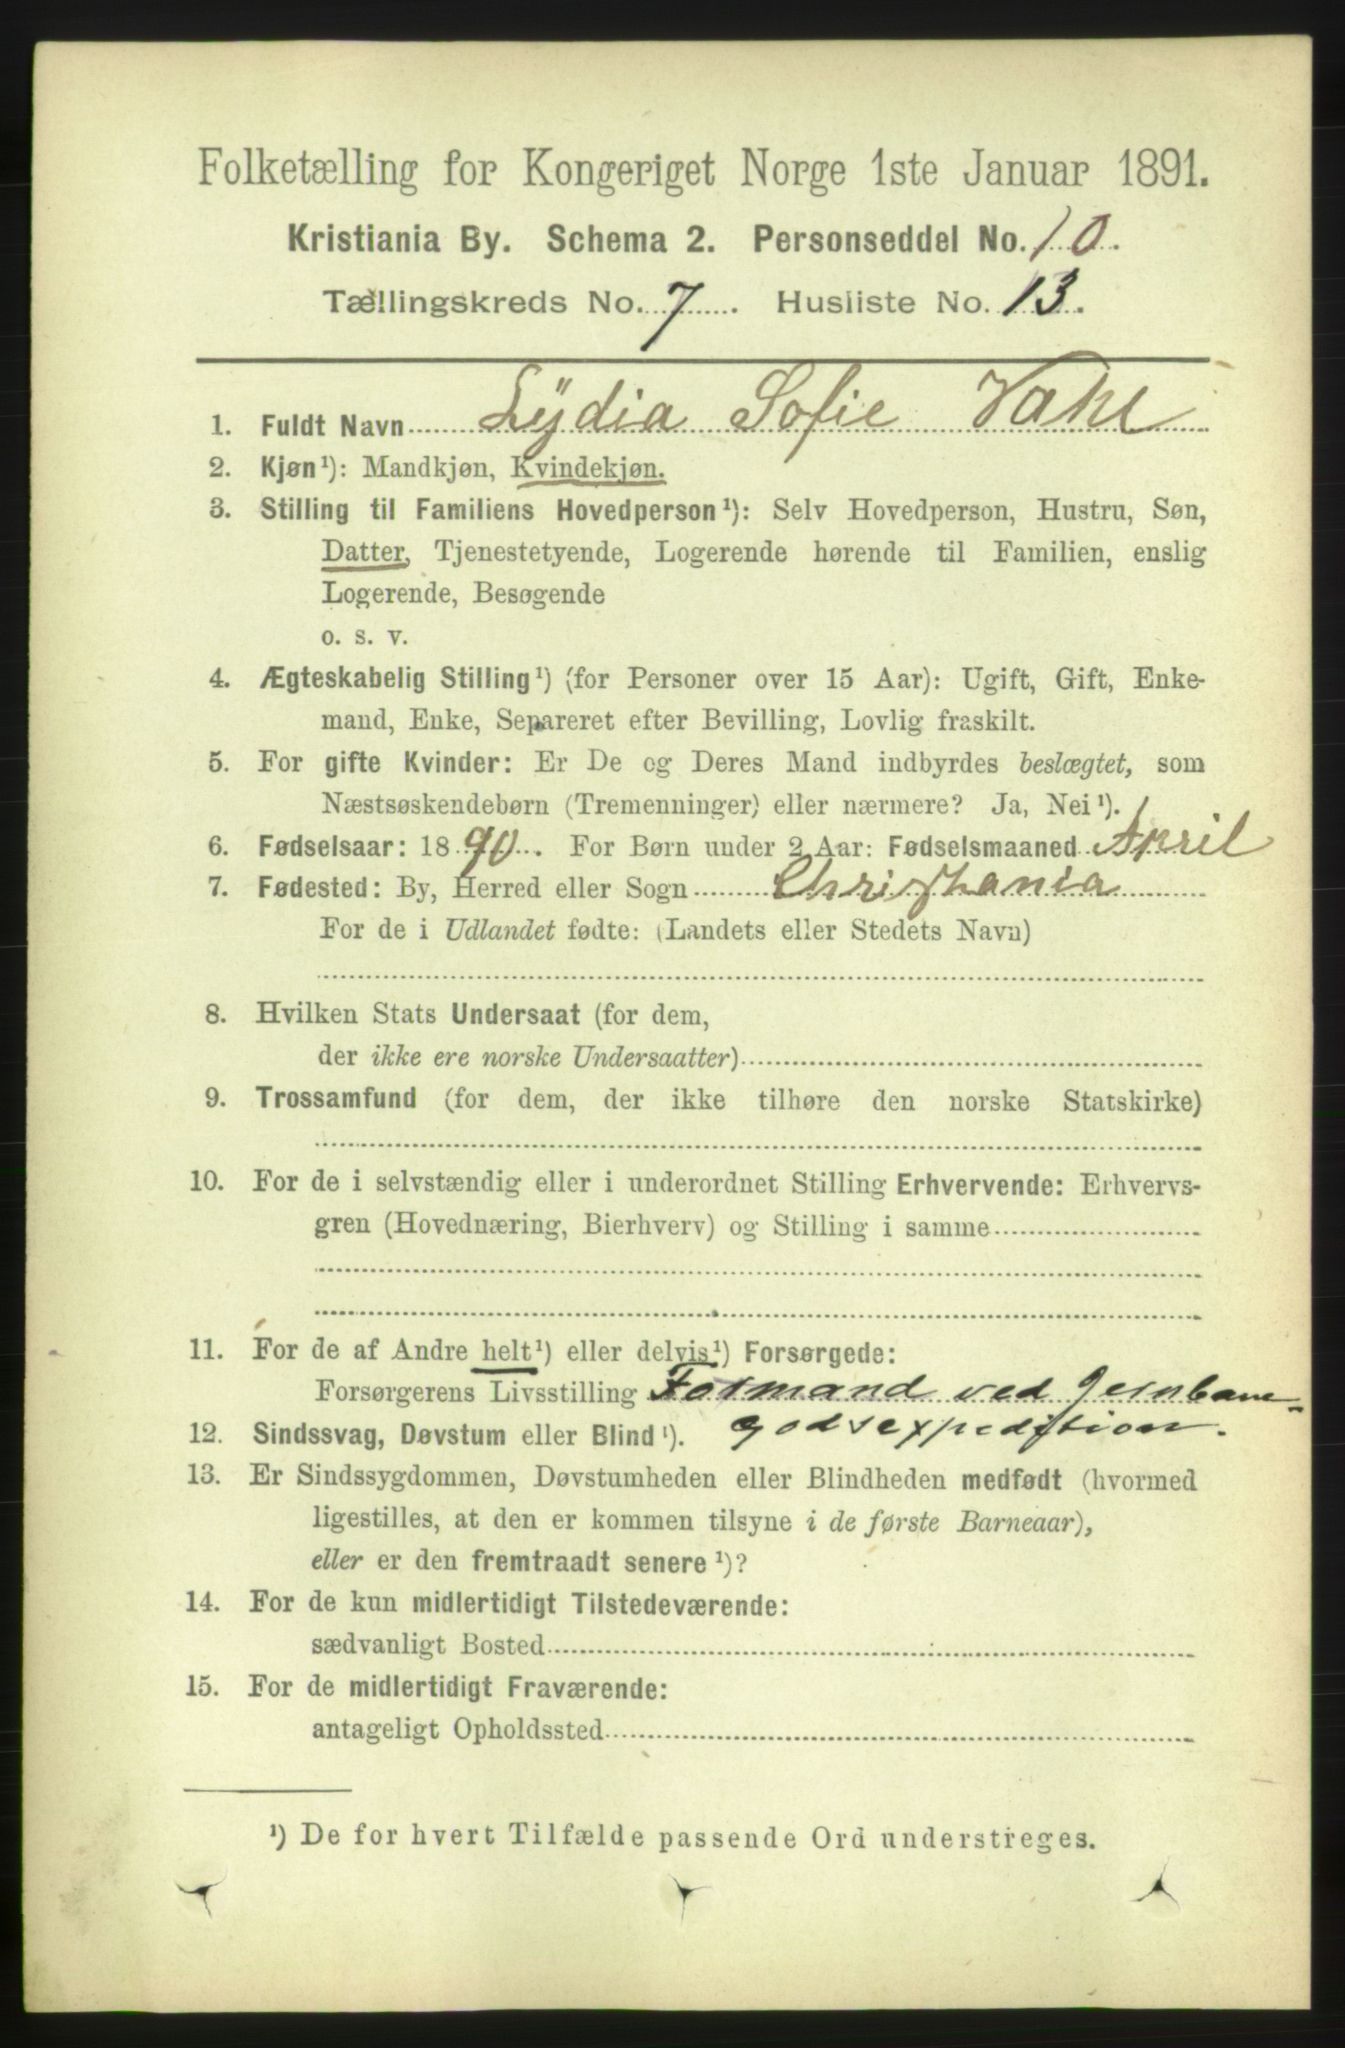 Folketælling for Kongeriget Norge 1ste Januar 1891.
Kristiania By. Schema 2. Personseddel No. 10.
Tællingskreds No. 7. Husliste No. 13.
1. Fuldt Navn Lydia Sofie Vahl
2. Kjøn¹): Mandkjøn, Kvindekjøn.
3. Stilling til Familiens Hovedperson¹): Selv Hovedperson, Hustru, Søn,
Datter, Tjenestetyende, Logerende hørende til Familien, enslig
Logerende, Besøgende
o. s. v.
4. Ægteskabelig Stilling¹) (for Personer over 15 Aar): Ugift, Gift, Enke-
mand, Enke, Separeret efter Bevilling, Lovlig fraskilt.
5. For gifte Kvinder: Er De og Deres Mand indbyrdes beslægtet, som
Næstsøskendebørn (Tremenninger) eller nærmere? Ja, Nei¹).
6. Fødselsaar: 1890. For Børn under 2 Aar: Fødselsmaaned April
7. Fødested: By, Herred eller Sogn Christiania
For de i Udlandet fødte: (Landets eller Stedets Navn)
8. Hvilken Stats Undersaat (for dem,
der ikke ere norske Undersaatter)
9. Trossamfund (for dem, der ikke tilhøre den norske Statskirke)
10. For de i selvstændig eller i underordnet Stilling Erhvervende: Erhvervs-
gren (Hovednæring, Bierhverv) og Stilling i samme
11. For de af Andre helt¹) eller delvis¹) Forsørgede:
Forsørgerens Livsstilling Formand ved Jernbane-
12. Sindssvag, Døvstum eller Blind¹). godsexpedition.
13. Er Sindssygdommen, Døvstumheden eller Blindheden medfødt (hvormed
ligestilles, at den er kommen tilsyne i de første Barneaar),
eller er den fremtraadt senere¹)?
14. For de kun midlertidigt Tilstedeværende:
sædvanligt Bosted
15. For de midlertidigt Fraværende:
antageligt Opholdssted
¹) De for hvert Tilfælde passende Ord understreges.